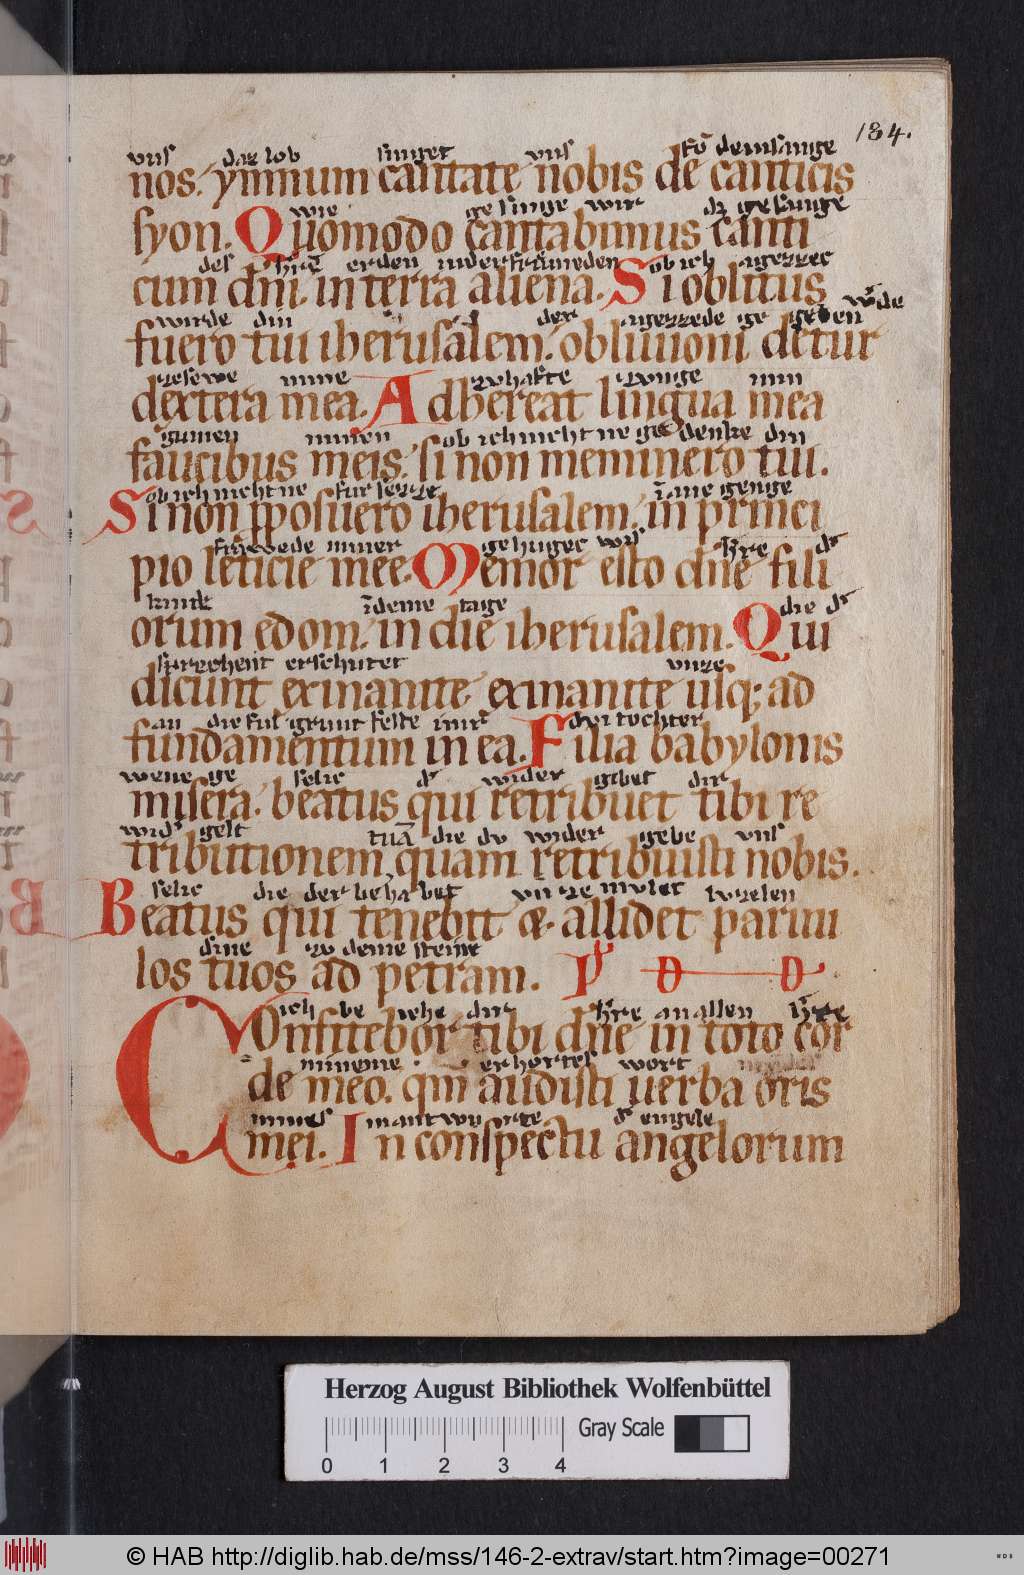 134.
vns daz lob singet vns fō demsange
nos. ymnum cantate nobis de canticis
wie ge singe wir dz gesange
syon. Quomodo cantabimus canti
des h̄rē erden inder frāmeden ob ich
cum dn̄i. in terra aliena. Si oblitus
wurde din der ge geben w̄de
fuero tui iherusalem. obliuioni detur
zesewe mine zvnge min
dextera mea. Adhereat lingua mea
gumen minen ob ich nicht ne ge denke din
faucibus meis. si non meminero tui.
ob ich nicht ne fur sezze īane genge
Si non p̄posuero iherusalem. in princi
miner gehuges wis h̄re dr
pio leticie mee. Memor esto dn̄e fili
kinde īdeme tage die dr
orum edom. in die iherusalem. Qui
sprechent erschutet vnze
dicunt exinanite exinanite usq; ad
an die ful grunt feste imr dvi tochter
fundamentum in ea. Filia babylonis
wene ge selic dr wider gibet dir
misera. beatus qui retribuet tibi re
widr gelt die du wider gebe vns
tributionem, quam retribuisti nobis.
selic die der behabet
Beatus qui tenebit & allidet paruu
dine zo deme steine
los tuos ad petram. P D D
ich be iehe dir h̄re an allen h̄rze
Confitebor tibi dn̄e in toto cor
mineme er hortes wort
de meo. qm̄ audisti uerba oris
mines dr engele
mei. In conspectu angelorum
Herzog August Bibliothek Wolfenbüttel
Gray Scale
0 1 2 3 4
© HAB http://diglib.hab.de/mss/146-2-extrav/start.htm?image=00271